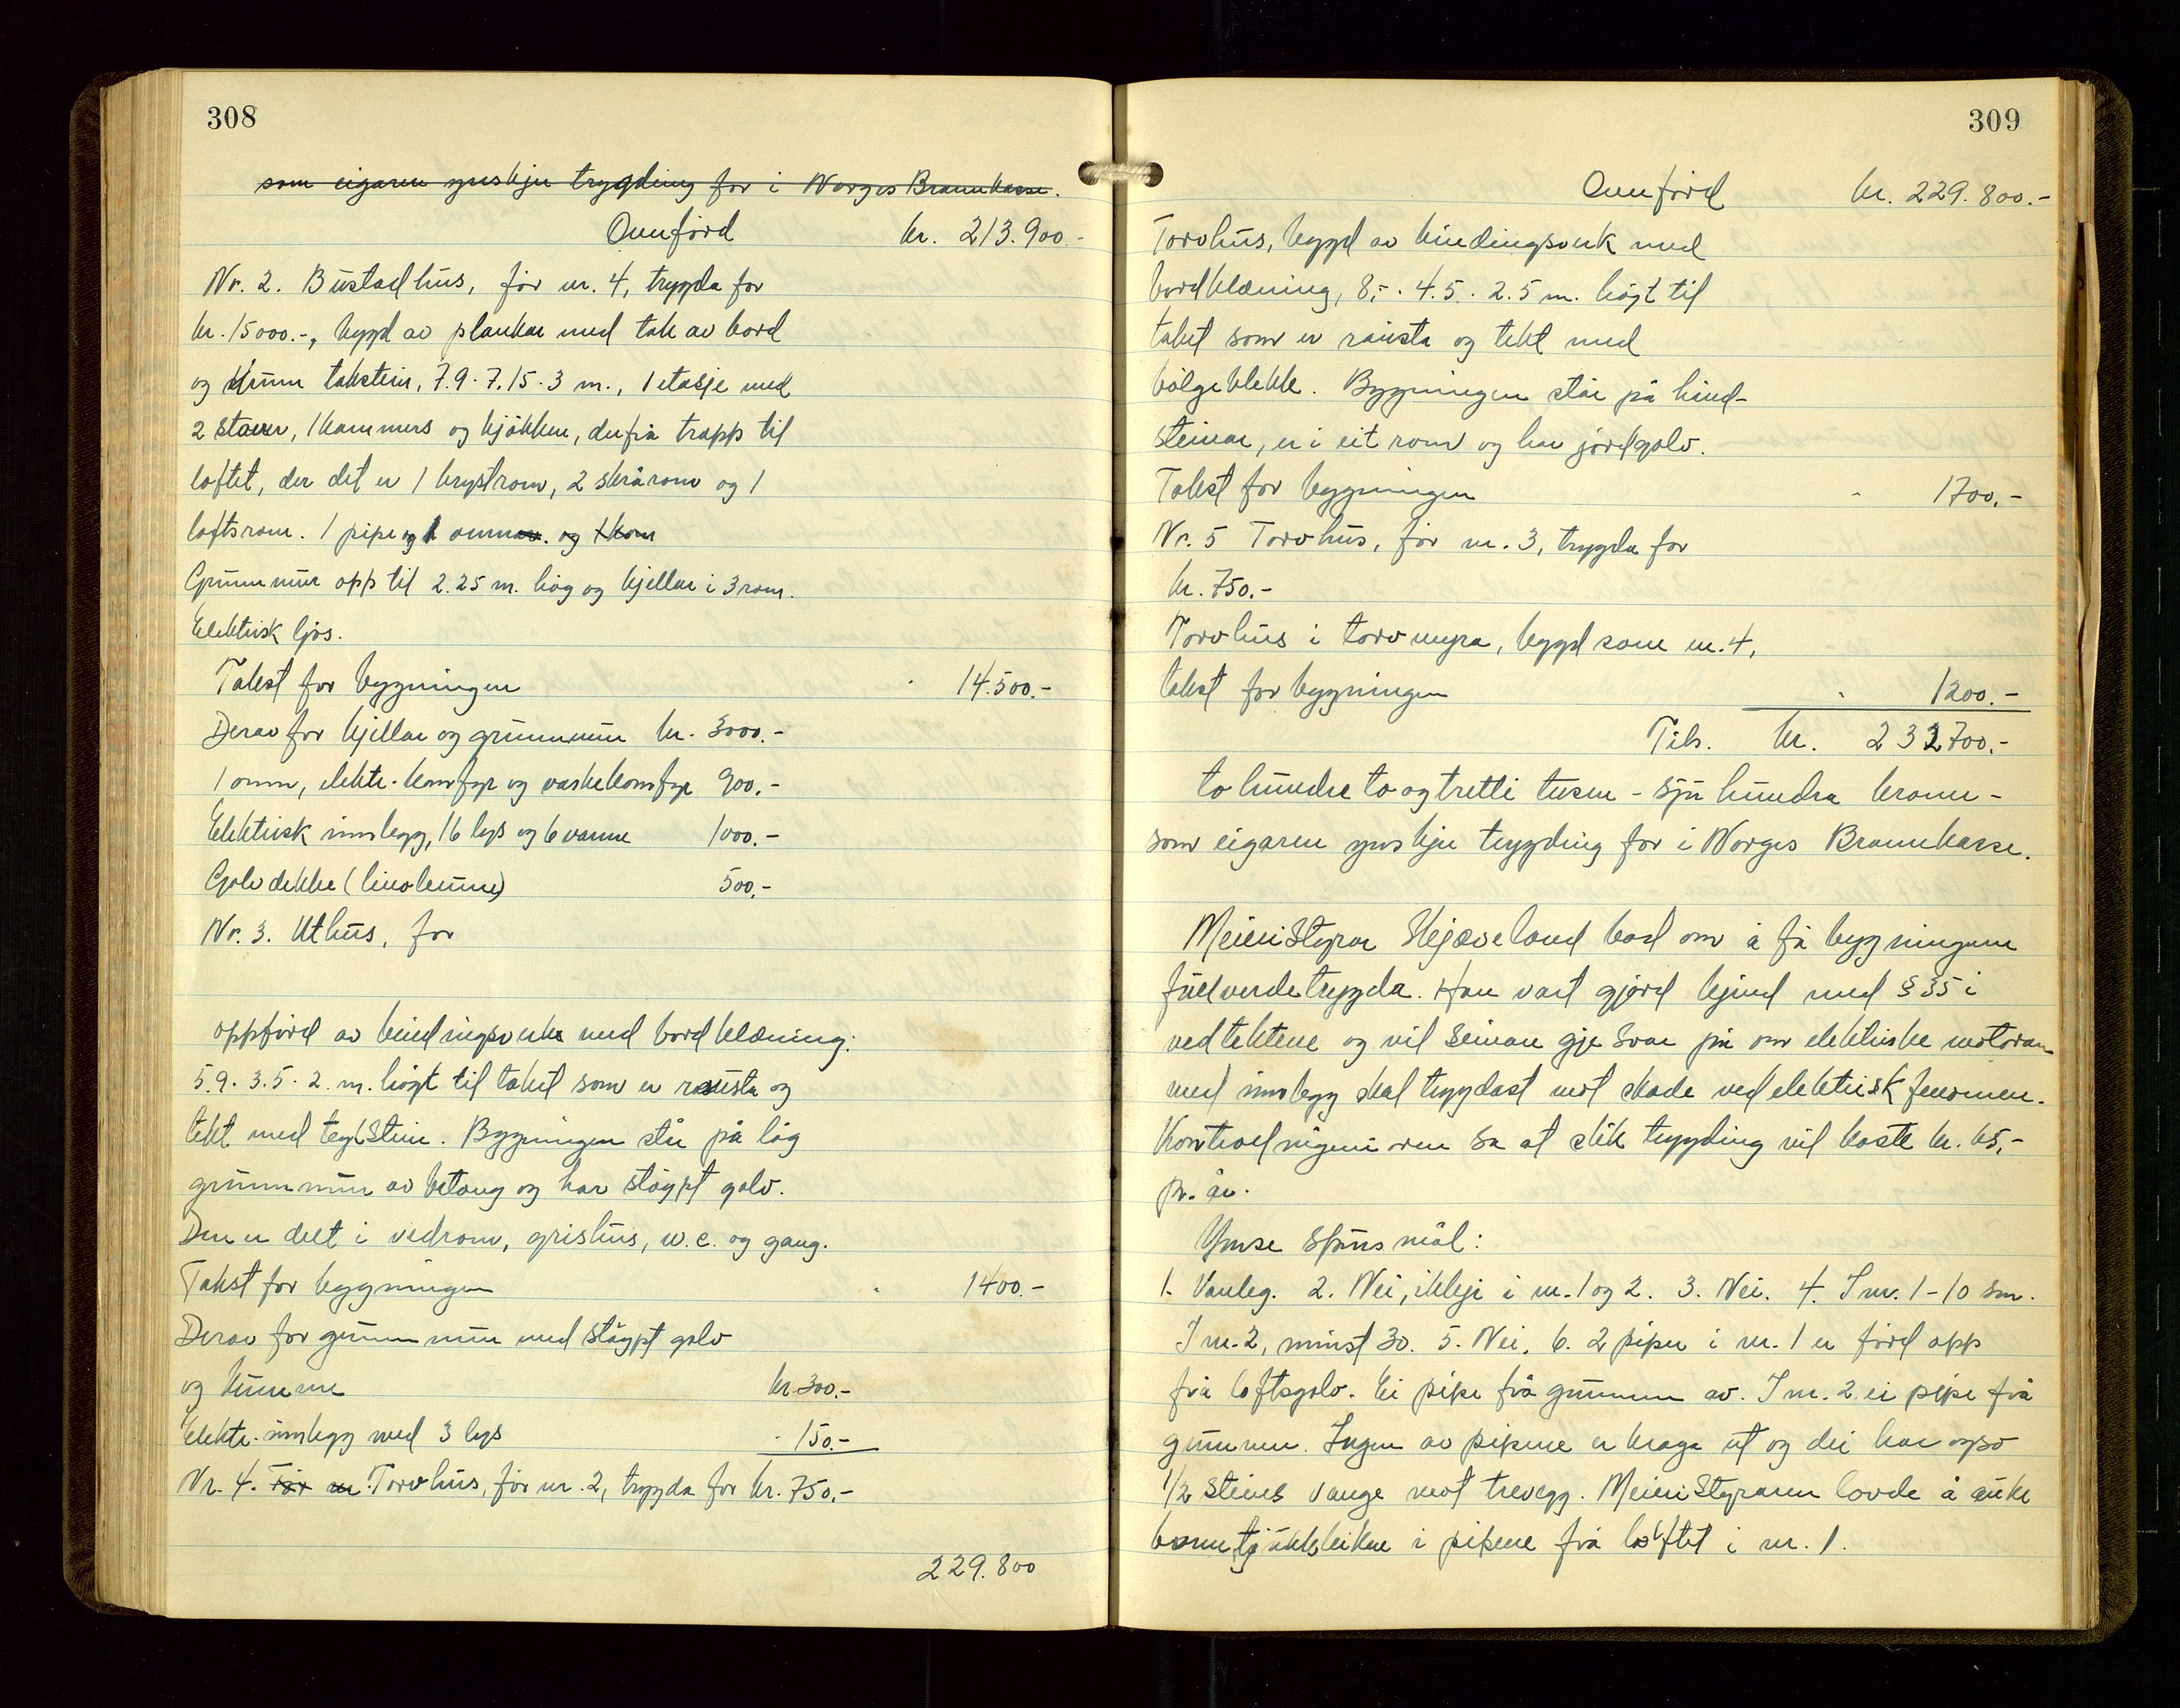 308
som eigaren ynskjer trygding for i Norges Brannkasse.
Overførd kr. 213.900.-
Nr. 2. Bustadhus, før nr. 4, trygda for
kr. 15000.-, bygd av plankar med tak av bord
og krum takstein, 7.9 · 7.15 · 3 m., 1 etasje med
2 stover, 1 kammers og kjøkken, derfrå trapp til
loftet, der det er 1 brystrom, 2 skrårom og 1
loftsrom. 1 pipe og 1 omnar. og 1 kom
Grunnmur opp til 2.25 m. høg og kjellar i 3 rom.
Elektrisk ljos.
Takst for bygningen - 14.500.-
Derav for kjellar og grunnmur kr. 3000.-
1 omn, elektr. komfyr og vaskekomfyr 900.-
Elektrisk innlegg, 16 lys og 6 varme 1000.-
Golvdekke (linoleum) 500.-
Nr. 3. Uthus, før
oppførd av bindingsverk med bordklæning:
5.9 · 3.5 · 2. m. høgt til taket som er røusta og
tekt med teglstein. Bygningen står på låg
grunnmur av betong og har støypt golv.
Den er delt i vedrom, grishus, w.c. og gang.
Takst for bygningen - 1400.-
Derav for grunnmur med støypt golv
og kumme kr. 300.-
Elektr. innlegg med 3 lys - 150.-
Nr. 4. Før nr. Torvhus, før nr. 2, trygda for kr. 750.-
229.800
309
Overførd kr. 229.800.-
Torvhus, bygd av bindingsverk med
bordklæning, 8,- · 4.5 · 2.5 m. høgt til
taket som er røusta og tekt med
bølgeblekk. Bygningen står på hind-
steinar, er i eit rom og har jordgolv.
Takst for bygningen - 1700.-
Nr. 5 Torvhus, før nr. 3, trygda for
kr. 750.-
Torvhus i torvmyra, bygd som nr. 4,
takst for bygningen - 1200.-
Tils. kr. 232700.-
to hundre to og tretti tusen - sju hundra kroner -
som eigaren ynskjer trygding for i Norges Brannkasse.
Meieristyrar Skjæveland bad om å få bygningene
fullverdetrygda. Han vart gjord kjend med § 35 i
vedtektene og vil seinare gje svar på om elektriske motorar
med innlegg skal trygdast mot skade ved elektrisk fenomen.
Kontrollingeniøren sa at slik trygding vil koste kr. 65,-
pr. år.
Ymse spursmål:
1. Vanleg. 2. Nei, ikkje i nr. 1 og 2. 3. Nei. 4. I nr. 1 - 10 sm.
I nr. 2, minst 30. 5. Nei. 6. 2 piper i nr. 1 er førd opp
frå loftsgolv. Ei pipe frå grunnen av. I nr. 2 ei pipe frå
grunnen. Ingen av pipene er kraga ut og dei har også
1/2 steins vange mot trevegg. Meieristyraren lovde å auke
tjukkleiken i pipene frå loftet i nr. 1.